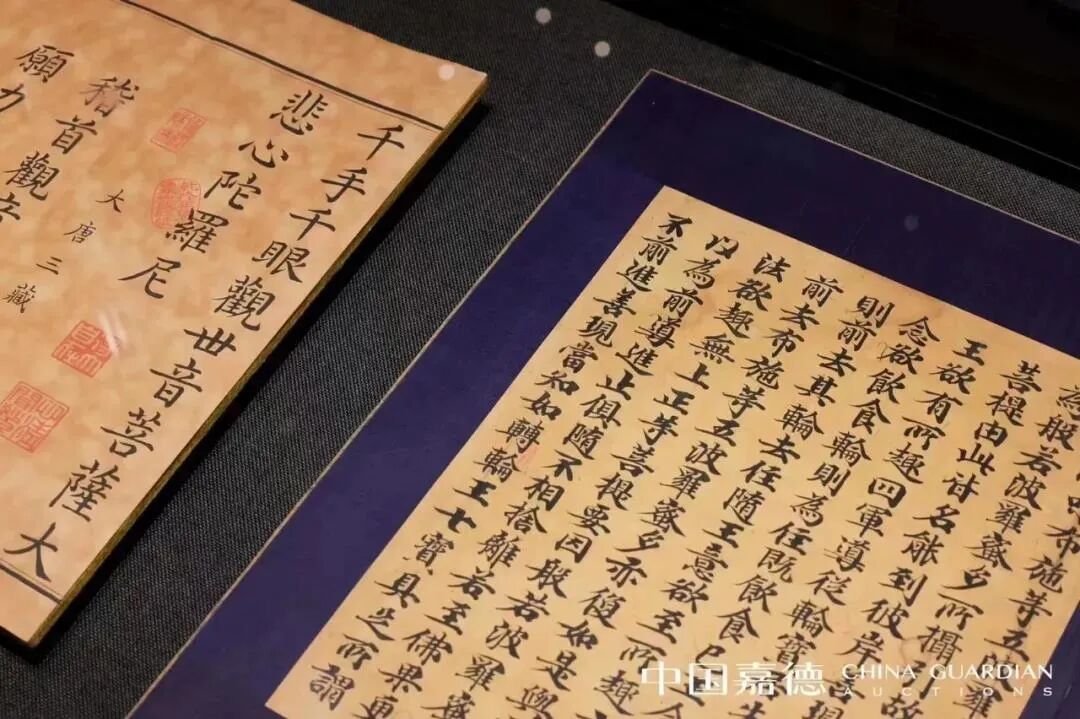 千手千眼觀世音菩薩大
悲心陀羅尼
大唐三藏
稽首觀音
願力
布施等五波羅
為般若波羅蜜多所攝故
菩提由此計名能到彼岸
王欲有所趣四軍導從輪寶
念欲飲食輪則為住既飲食已
則前去其輪去住隨王意欲至所趣
前去布施等五波羅蜜多亦復如是與
法欲趣無上正等菩提要因般若波羅蜜
以為前導進止俱隨不相捨離若至佛果更
不前進善現當知如轉輪王七寶具足所謂
中国嘉德 CHINA GUARDIAN
AUCTIONS